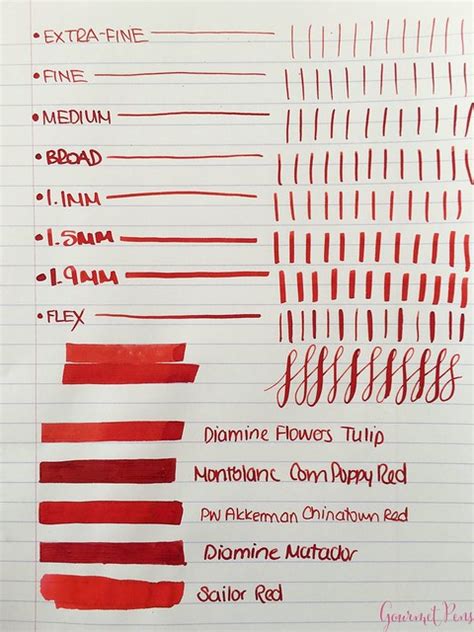 • EXTRA-FINE
• FINE
• MEDIUM
• BROAD
• 1.1MM
• 1.5MM
• 1.9MM
• FLEX
Diamine Flowers Tulip
Montblanc Corn Poppy Red
PW Akkerman Chinatown Red
Diamine Matador
Sailor Red
Gourmet Pens